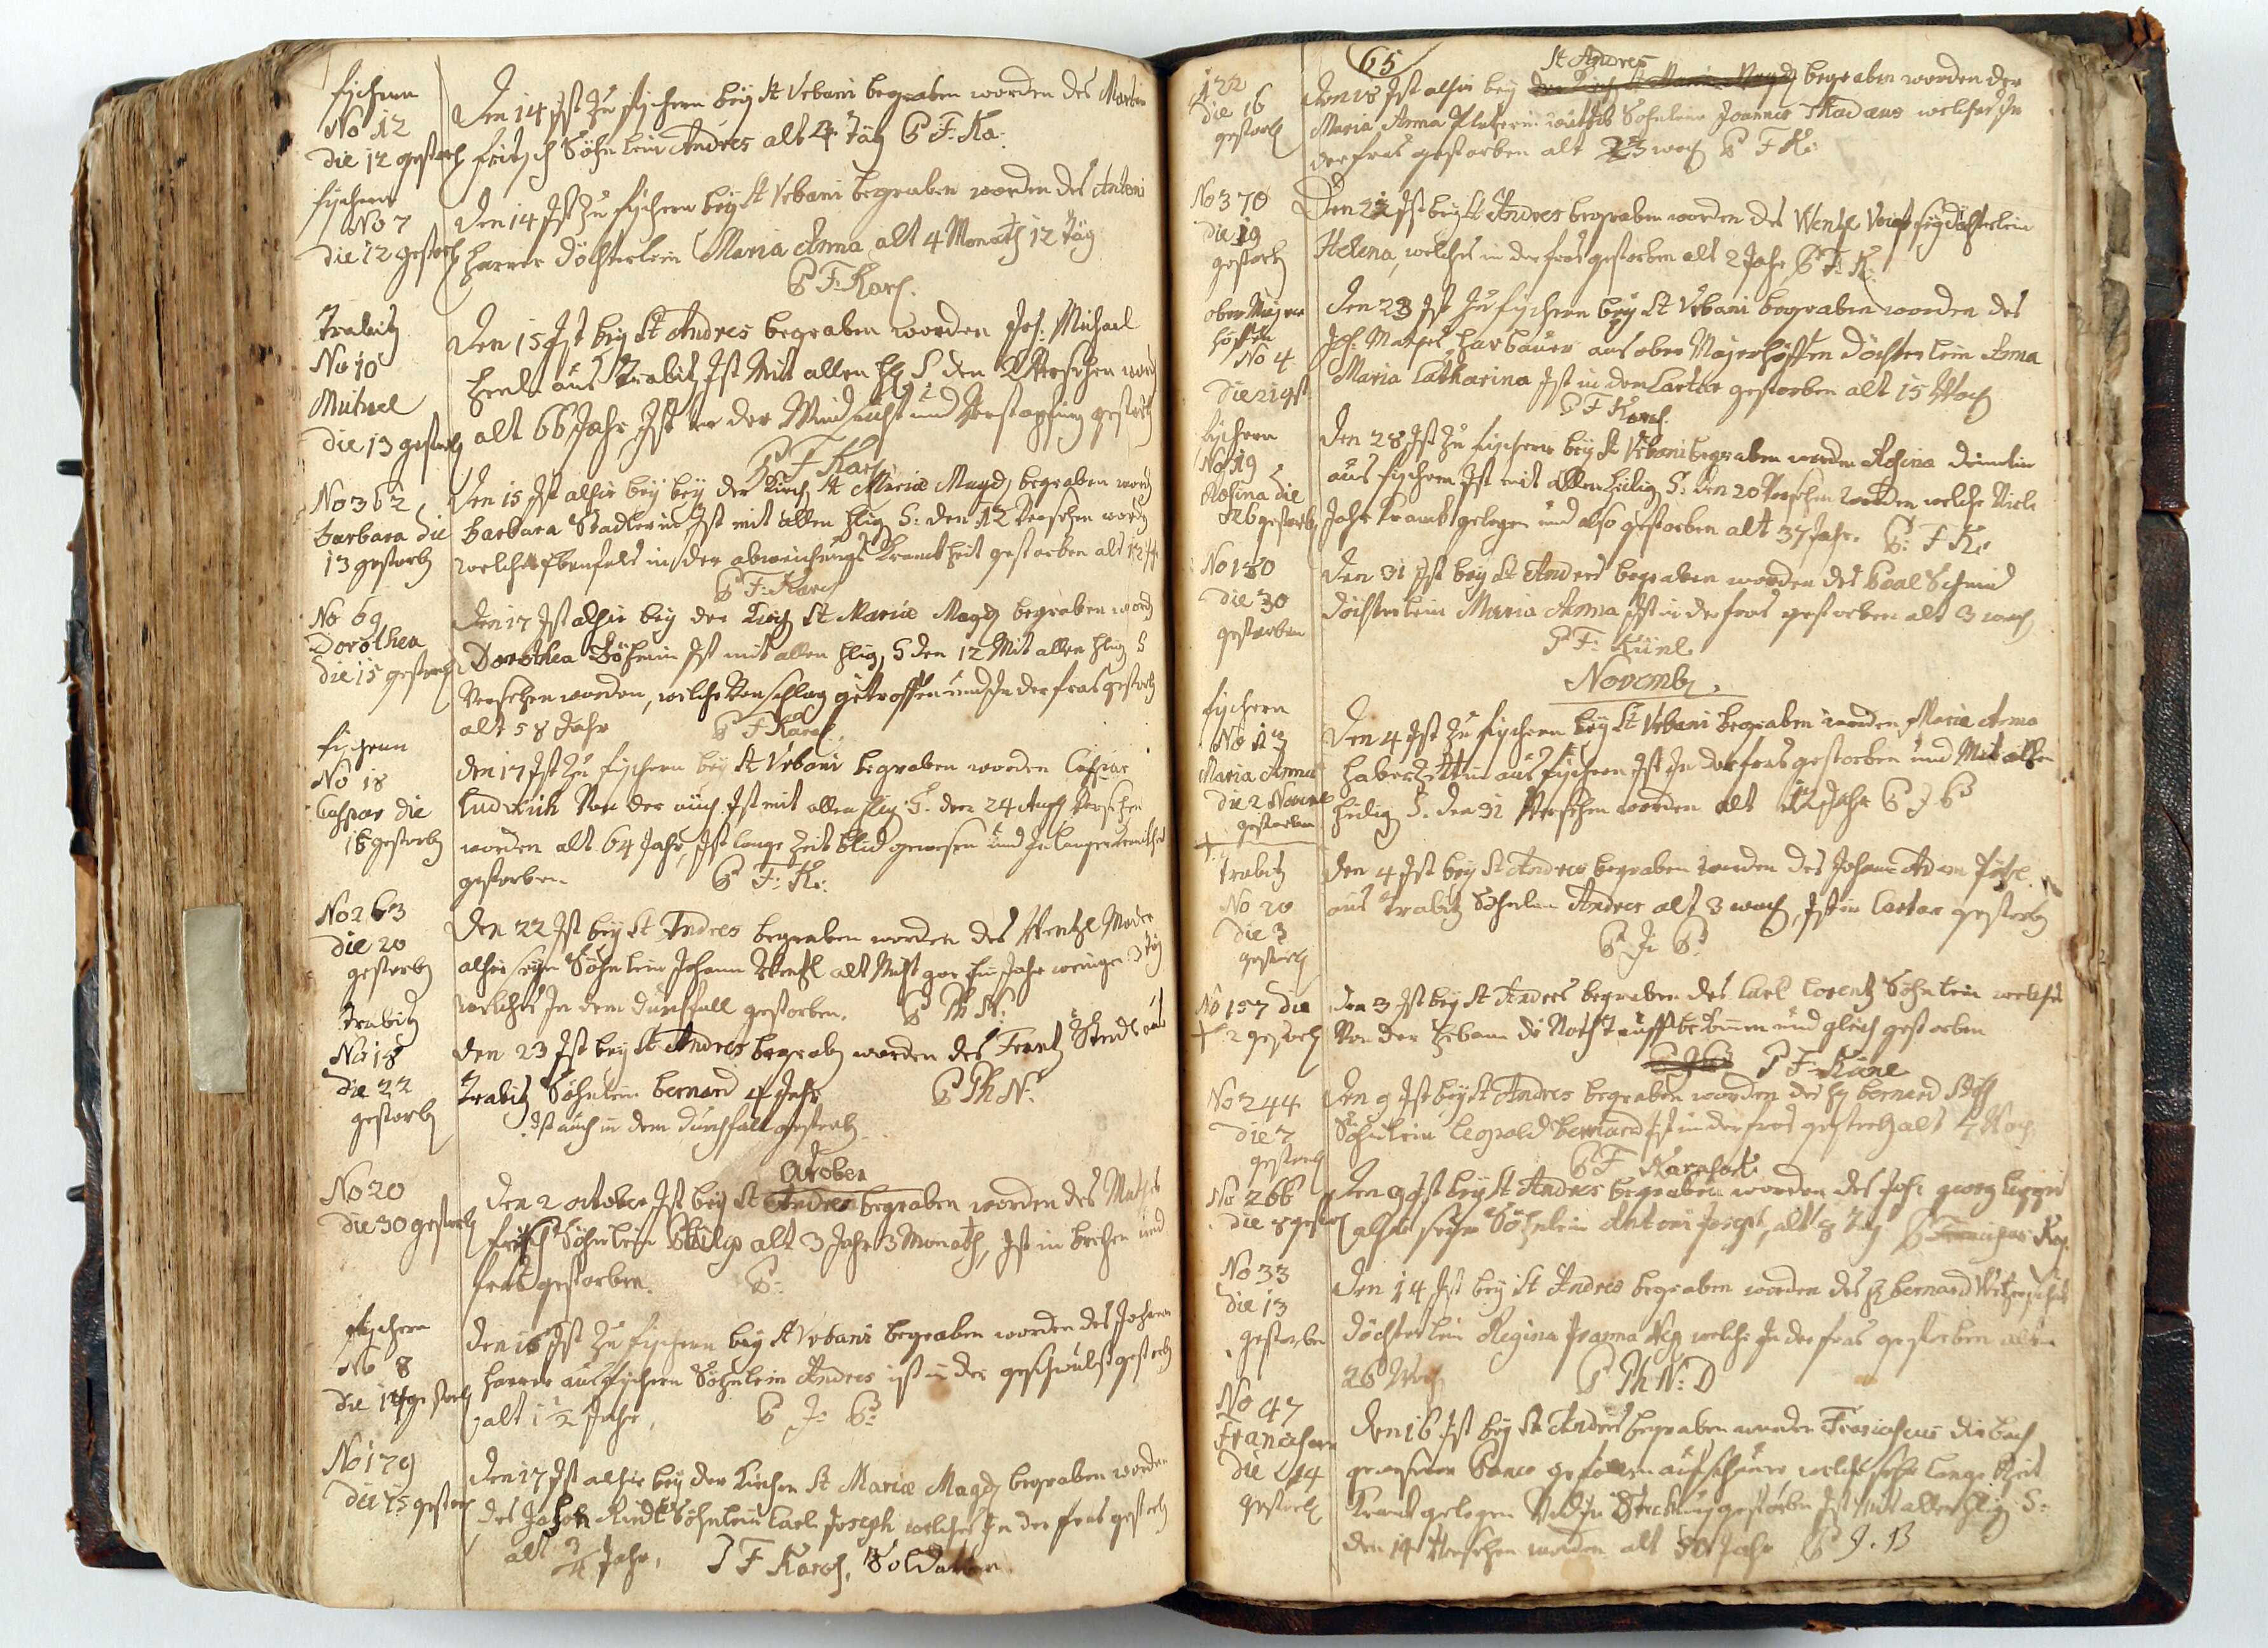 fischern
No 12
die 12 gestorb
Den 14 Ist Zu fischern bey St Urbani begraben worden des Martin
fritsch Söhnlein Andres alt 4 Täg P F: Ka:
fischern
No 7
die 12 gestorb
Den 14 Ist Zu fischern bey St Urbani begraben worden des Antoni
harrer Döchterlein Maria Anna alt 4 Monath 12 Täg
P F: Karch.
Trabitz
No 10
Michael
die 13 gestorb
Den 15 Ist bey St Andres begraben worden Joh: Michael
aus Trabitz Ist Mit allen hlg S den 2 Versehen word
alt 66 Jahr Ist in der Windsucht und Verstopfung gestorb
P F Karch
No 362
Barbara die
13 gestorb
Den 15 Ist alhir bey bey der Kirch St Mariæ Magd begraben word
Barbara Stadlerin Ist mit allen hlig S: den 12 Versehen word
welche Ebenfals in der abweichungs Krankheit gestorben alt 12
P F: Karch
No 69
Dorothea
die 15 gestorb
Den 17 Ist alhir bey der Kirch St Mariæ Magd begraben word
Dorothea Böhmin Ist mit allen hlig S den 12 Mit allen hlig S
Versehen worden, welche Vom schlag getroffen und In der frais gestorb
alt 58 Jahr P F Karch
fischern
No 18
Caspar die
16 gestorb
Den 17 Ist Zu fischern bey St Urbani begraben worden Caspar
Ludwich Von der auch Ist mit allen hlig S. den 24 Aug Versehen
worden alt 64 Jahr, Ist lange Zeit blid gewesen und In langer
gestorben P F: K:
No 263
die 20
gestorb
Den 22 Ist bey St Andres begraben worden des Wentzl Mader
alhir seyn Söhnlein Johann Wentzl alt Nicht gar Ein Jahr weniger 3 Täg
welches In dem durchfall gestorben. P Th N:
Trabitz
No 18
die 22
gestorb
Den 23 Ist bey St Andres begrab worden des Frantz aus
Trabitz Söhnlein bernard 4 Jahr P Th N:
Ist auch in dem durchfall gestorb
October
No 20
die 30 gestorb
Den 2 october Ist bey St Andres begraben worden des Mathes
fritsch Söhnlein Philip alt 3 Jahr 3 Monath, Ist in und
frais gestorben. P:
fischern
No 8
die 14 gestorb
Den 16 Ist Zu fischern bey St Urbani begraben worden des Johann
harrer aus fischern Söhnlein Andres ist in der geschwulst gestorb
alt 1 1/2 Jahr, P J: P:
No 179
die 15 gestorb
Den 17 Ist alhir bey der Kirchen St Mariæ Magd begraben worden
des Johan Riedl Söhnlein Carl Joseph welches In der frais gestorb
alt 3/4 Jahr, P F Karch, Soldaten
65
122
die 16
gestorb
St Andres
Den 18 Ist alhir bey der Kirch St Maria Magd begraben worden der
Maria Anna Söhnlein Joannes Thadæus welches In
der frais gestorben alt 23 woch P F K:
No 370
die 19
gestorb
Den 21 Ist bey St Andres begraben worden des Wentzl döchterlein
Helena, welches in der frais gestorben alt 2 Jahr P F: K:
ober Majer
höffen
No 4
die 21 gst
Den 23 Ist Zu fischern bey St Urbani begraben worden des
Joh. Mathes harbauer aus ober Majerhöffen Döchterlein Anna
Maria Catharina Ist in dem Cartar gestorben alt 15 Woch
P F Karch.
fischern
No 19
Rosina die
26 gestorb
Den 28 Ist Zu fischern bey St Urbani begraben worden Rosina
aus fischern Ist mit allen heilig S: den 20 Versehen worden welche Viele
Jahr krank gelegen und also gestorben alt 37 Jahr. P: F K:
No 180
die 30
gestorben
Den 31 Ist bey St Andres begraben worden des Paal Schmid
döchterlein Maria Anna Ist in der frais gestorben alt 3 woch
P F: Künl
Novemb.
fischern
No 13
Maria Anna
die 2 Novemb
gestorben
Den 4 Ist Zu fischern bey St Urbani begraben worden Maria Anna
haberzettlin aus fischern Ist In der frais gestorben und Mit allen
heilig S. den 31 Versehen worden alt 12 Jahr P J P:
Trabitz
No 20
die 3
gestorb
Den 4 Ist bey St Andres begraben worden des Johann Adam
aus Trabitz Söhnlein Andres alt 3 woch, Ist in Cartar gestorb
P J: P:
No 157 die
2 gestorb
Den 3 Ist bey St Andres begraben des Carl Lorentz Söhnlein welches
Von der hebam die Noth Tauff bekomen und gleich gestorben
P F: Künl
No 244
die 7
gestorb
Den 9 Ist bey St Andres begraben worden des H bernard
Söhnlein Leopold Bernard Ist in der frais gestorb alt 7 Woch
P F Karch
No 266
die 8 gestorb
Den 9 Ist bey St Andres begraben worden des Joh: georg
alhir seyn Söhnlein Antoni Joseph, alt 8 Täg P Franciscus Kar.
No 33
die 13
gestorben
Den 14 Ist bey St Andres begraben worden des H bernard
döchterlein Regina Joanna welche In der frais gestorben alt
26 Woch P Th N: D
No 47
Franciscus
die 14
gestorb
Den 16 Ist bey St Andres begraben worden Franciscus
gewesener welcher sehr lange Zeit
Krank gelegen und In gestorben Ist mit allen hlig S:
den 14 Versehen worden alt 50 Jahr P J. B